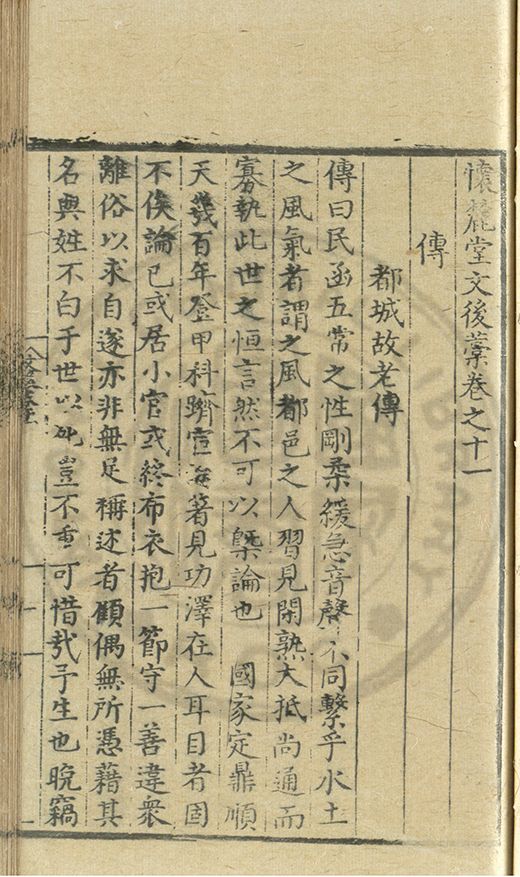 懷麓堂文後藁卷之十一
傳
都城故老傳
傳曰民函五常之性剛柔緩急音聲不同繫乎水土
之風氣者謂之風都邑之人習見閑熟大抵尚通而
寡執此世之恒言然不可以槩論也　國家定鼎順
天幾百年登甲科躋宦海著見功澤在人耳目者固
不俟論已或居小官或終布衣抱一節守一善違衆
離俗以求自遂亦非無足稱述者顧偶無所憑藉其
名與姓不白于世以死豈不重可惜哉予生也晚竊